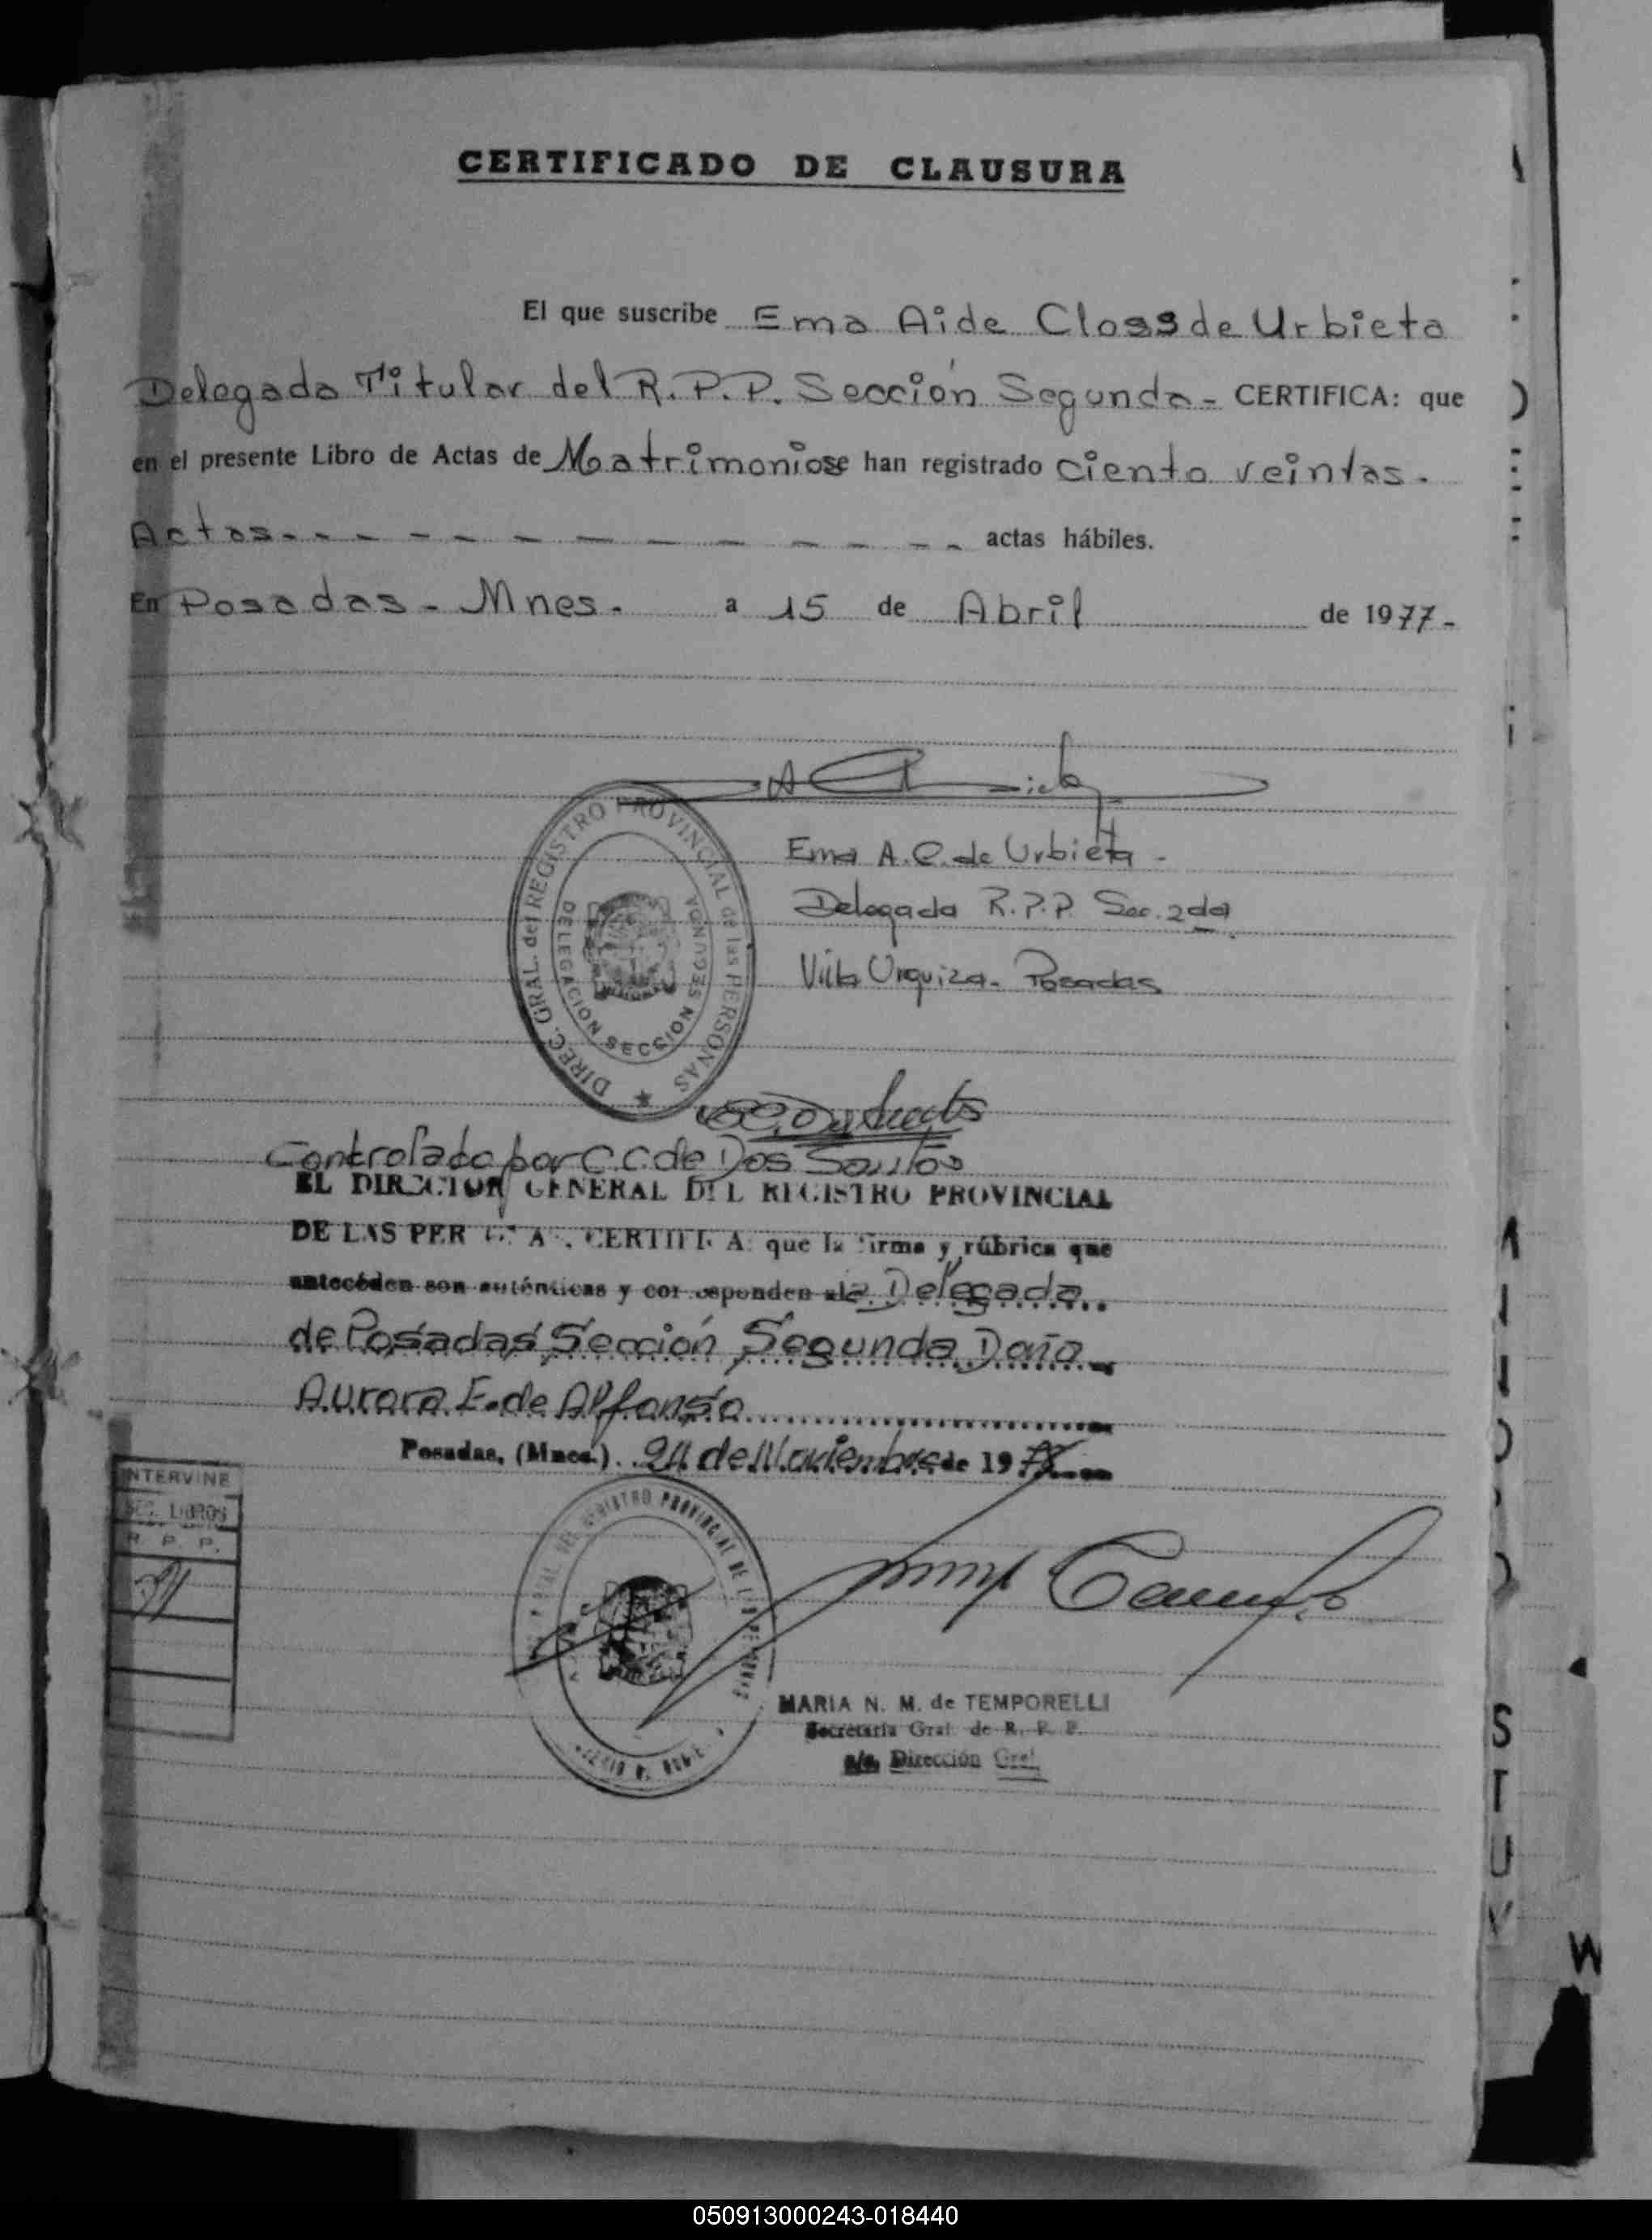 CERTIFICADO DE CLAUSURA
El que suscribe Ema Aide Closs de Urbieta
Delegada Titular del R.P.P. Sección Segunda - CERTIFICA: que
en el presente Libro de Actas de Matrimonio se han registrado ciento veintas.
Actas - - - - - - - - - - - - actas hábiles.
En Posadas - Mnes. a 15 de Abril de 1977 -
DIREC. GRAL. del REGISTRO PROVINCIAL de las PERSONAS
DELEGACION SECCION SEGUNDA
Ema A. C. de Urbieta -
Delegada R.P.P. Sec. 2da
Villa Urquiza - Posadas
Controlado por C.C. de Dos Santos
EL DIRECTOR GENERAL DEL REGISTRO PROVINCIAL
DE LAS PERSONAS, CERTIFICA: que la firma y rúbrica que
anteceden son auténticas y corresponden a la Delegada
de Posadas Sección Segunda Doña
Aurora E. de Alfonso
Posadas, (Mnes.) 24 de Noviembre de 19
INTERVINE
SEC. LIBROS
R. P. P.
REGISTRO PROVINCIAL DE LAS PERSONAS
MARIA N. M. de TEMPORELLI
Secretaria Gral. de R. P. P.
a/c. Dirección Gral.
S
T
U
V
W
050913000243-018440